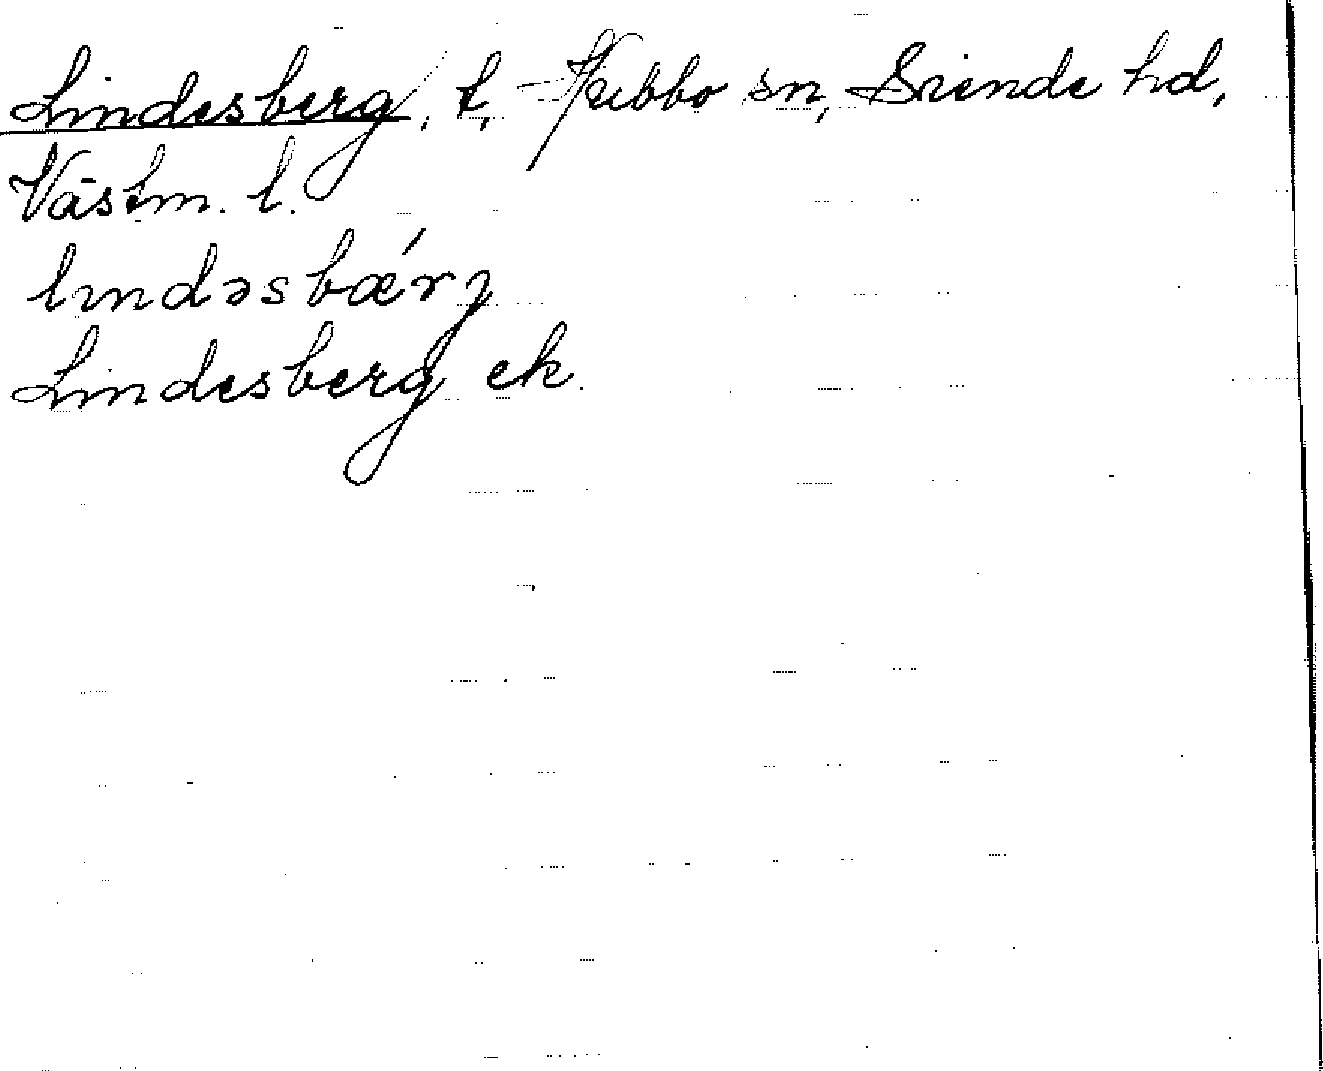 Lindesberg, t, Kubbo sn, Siende hd,
Västm. l.
lındəsbǽrj
Lindesberg ek.